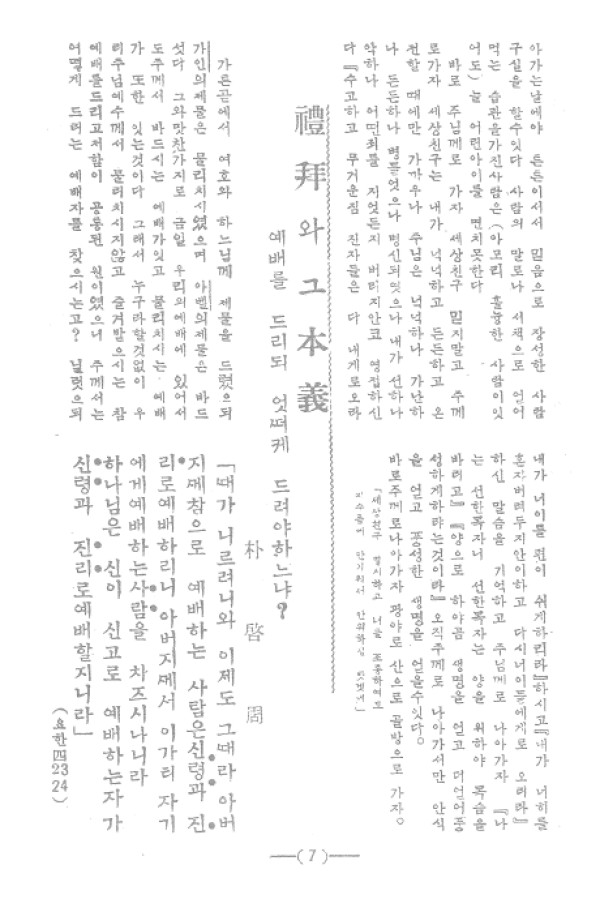 아가는날에야 튼튼이서서 믿음으로 장성한 사람
구실을 할수있다 사람의 말로나 서책으로 얻어
먹는 습관을가진사람은(아모리 훌늉한 사람이잇
어도) 늘 어린아이를 면치못한다
바로 주님께로 가자 세상친구 믿지말고 주께
로가자 세상친구는 내가 넉넉하고 든든하고 온
전할 때에만 가까우나 주님은 넉넉하나 가난하
나 든든하나 병들엇으나 병신되엇으나 내가 선하나
악하나 어떤죄를 지엇든지 버리지안코 영접하신
다 『수고하고 무거운짐 진자들은 다 내게로오라
내가 너이를 편이 쉬게하리라』하시고『내가 너히를
혼자버려두지안이하고 다시너이들에게로 오리라』
하신 말슴을 기억하고 주님께로 나아가자 『나
는 선한목자니 선한목자는 양을 위하야 목슴을
바려고』『양으로 하야곰 생명을 얻고 더얻어풍
성하게하랴는것이라』오직주께로 나아가서만 안식
을 얻고 풍성한 생명을 얻을수잇다。
바로주께로나아가자 광야로 산으로 골방으로 가자。
「세상친구 멸시하고 너를 조롱하여도
예수품에 안기워서 안위함심
禮拜와 그 本義
예배를 드리되 엇떠케 드려야하느냐?
朴啓周
「때가 니르려니와 이제도 그때라 아버
지께참으로 예배하는 사람은신령과 진
리로예배하리니 아버지께서 이가티 자기
에게예배하는사람을 차즈시나니라
하나님은 신이 신고로 예배하는자가
신령과 진리로예배할지니라」
(요한四 23 24)
가른곧에서 여호와 하느님께 제물을 드렸으되
가인의제물은 물리치시였으며 아벨의제물은 바드
섯다 그와맛찬가지로 금일 우리의예배에 있어서
도주께서 바드시는 예배가잇고 물리치시는 예배
가 또한 잇는것이다 그래서 누구라할것없이 우
리주님예수께서 물리치시지않고 즐겨받으시는 참
예배를드리고저함이 공통된 원이였으니 주께서는
어떻게 드리는 예배자를 찾으시는고? 닐럿으되
—(7)—